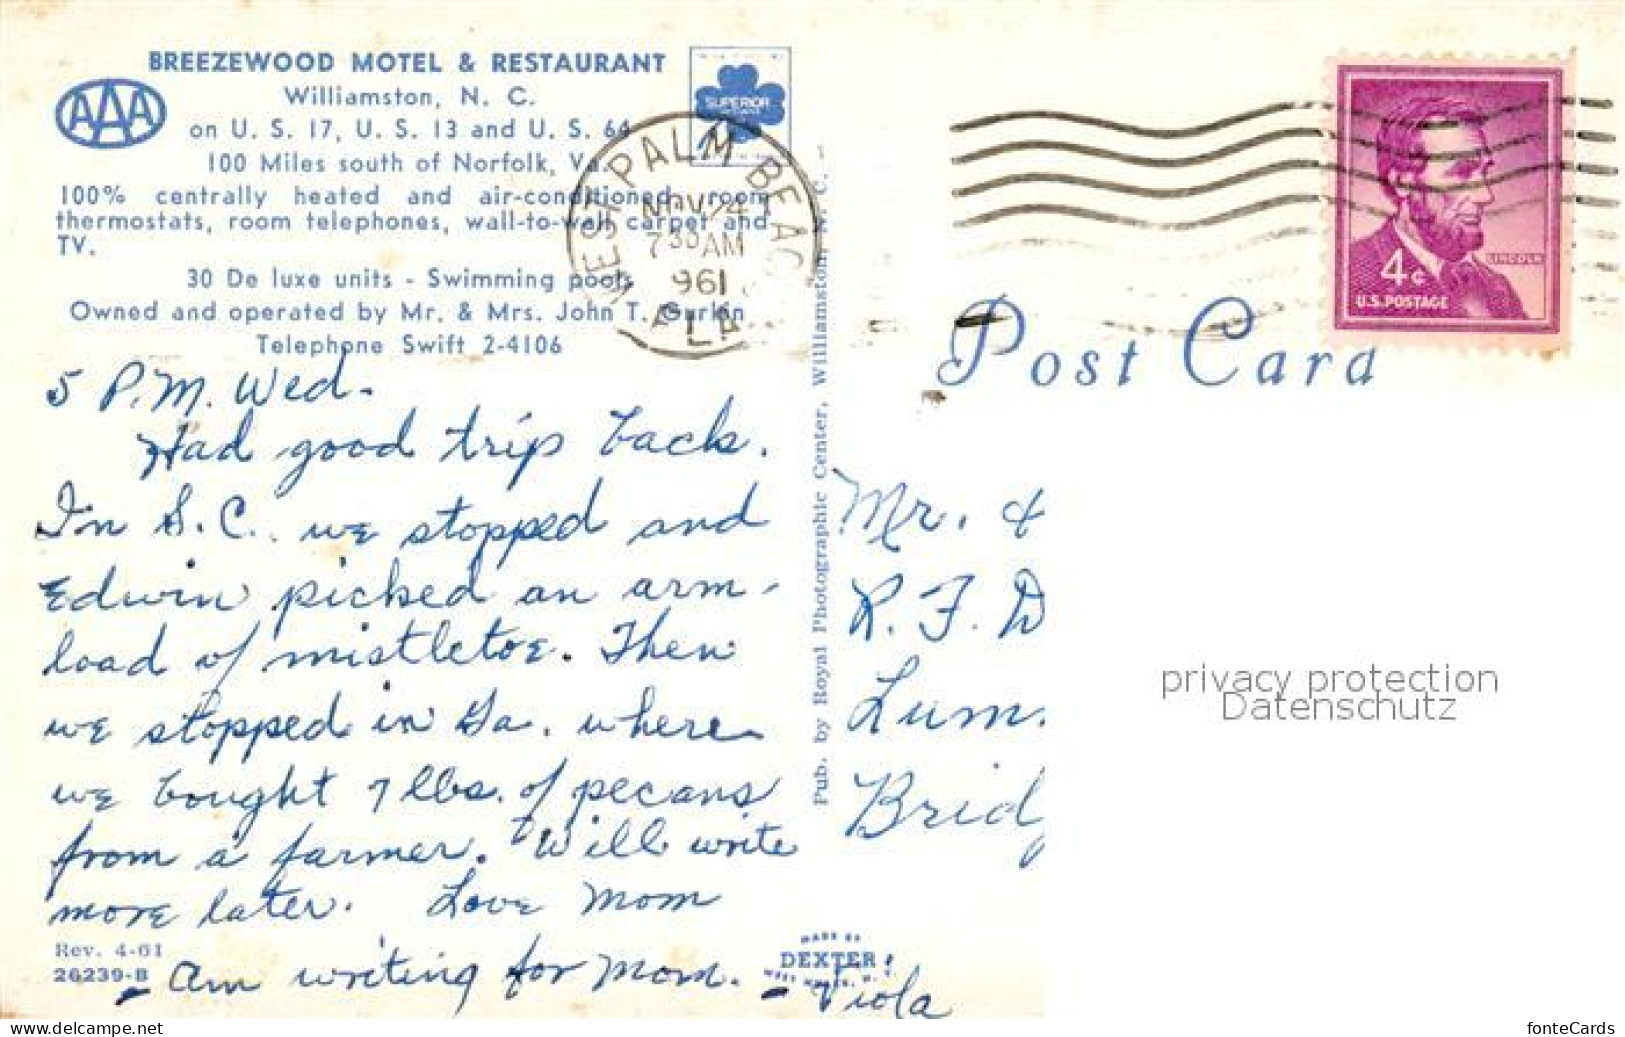 BREEZEWOOD MOTEL & RESTAURANT
Williamston, N. C.
on U. S. 17, U. S. 13 and U. S. 64
100 Miles south of Norfolk, Va.
100% centrally heated and air-conditioned, room
thermostats, room telephones, wall-to-wall carpet and
TV.
30 De luxe units - Swimming pools
Owned and operated by Mr. & Mrs. John T. Gurkin
Telephone Swift 2-4106
AAA
SUPERIOR
WEST PALM BEAC
NOV 4
7 30 AM
961
FLA
4¢
LINCOLN
U.S. POSTAGE
Post Card
5 P.M. Wed-
Had good trip back.
In S.C. we stopped and
Edwin picked an arm-
load of mistletoe. Then
we stopped in Ga. where
we bought 7 lbs. of pecans
from a farmer. Will write
more later. Love Mom
Am writing for Mom. - Viola
Rev. 4-61
26239-B
MADE BY
DEXTER
Pub. by Royal Photographic Center, Williamston, N. C. -
Mr. &
R. F. D
Lum
Bridg
privacy protection
Datenschutz
www.delcampe.net
fonteCards